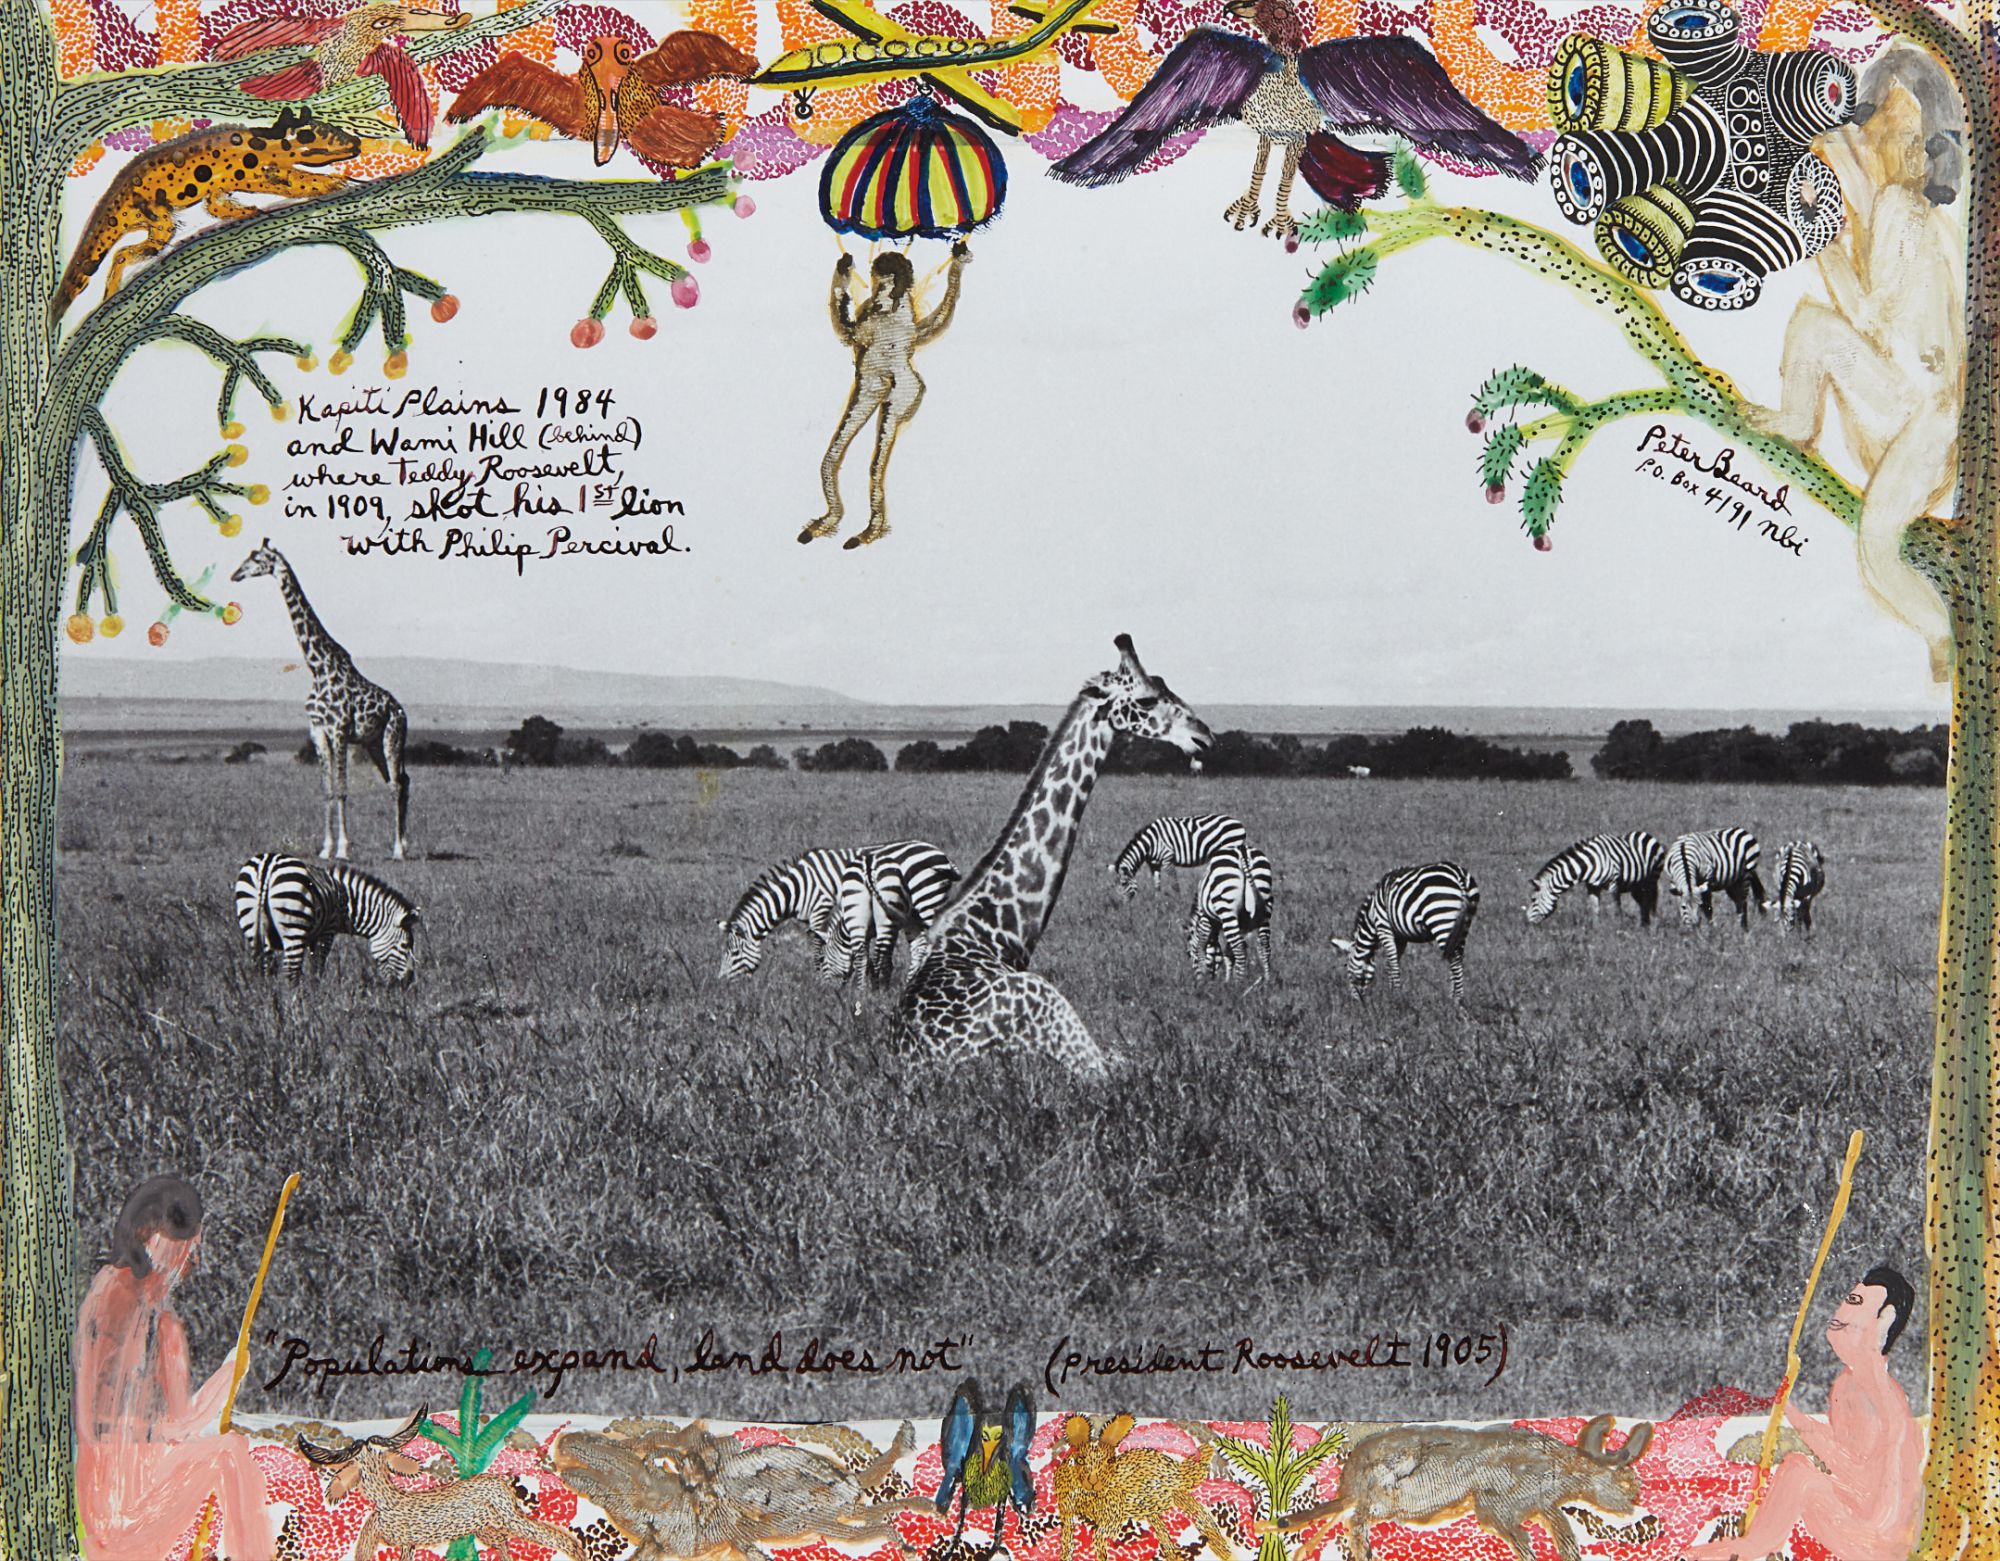 Kapiti Plains 1984
and Wami Hill (behind)
where Teddy Roosevelt,
in 1909, shot his 1st lion
with Philip Percival.
Peter Beard
P.O. Box 4191 nbi
"Populations expand, land does not" (president Roosevelt 1905)